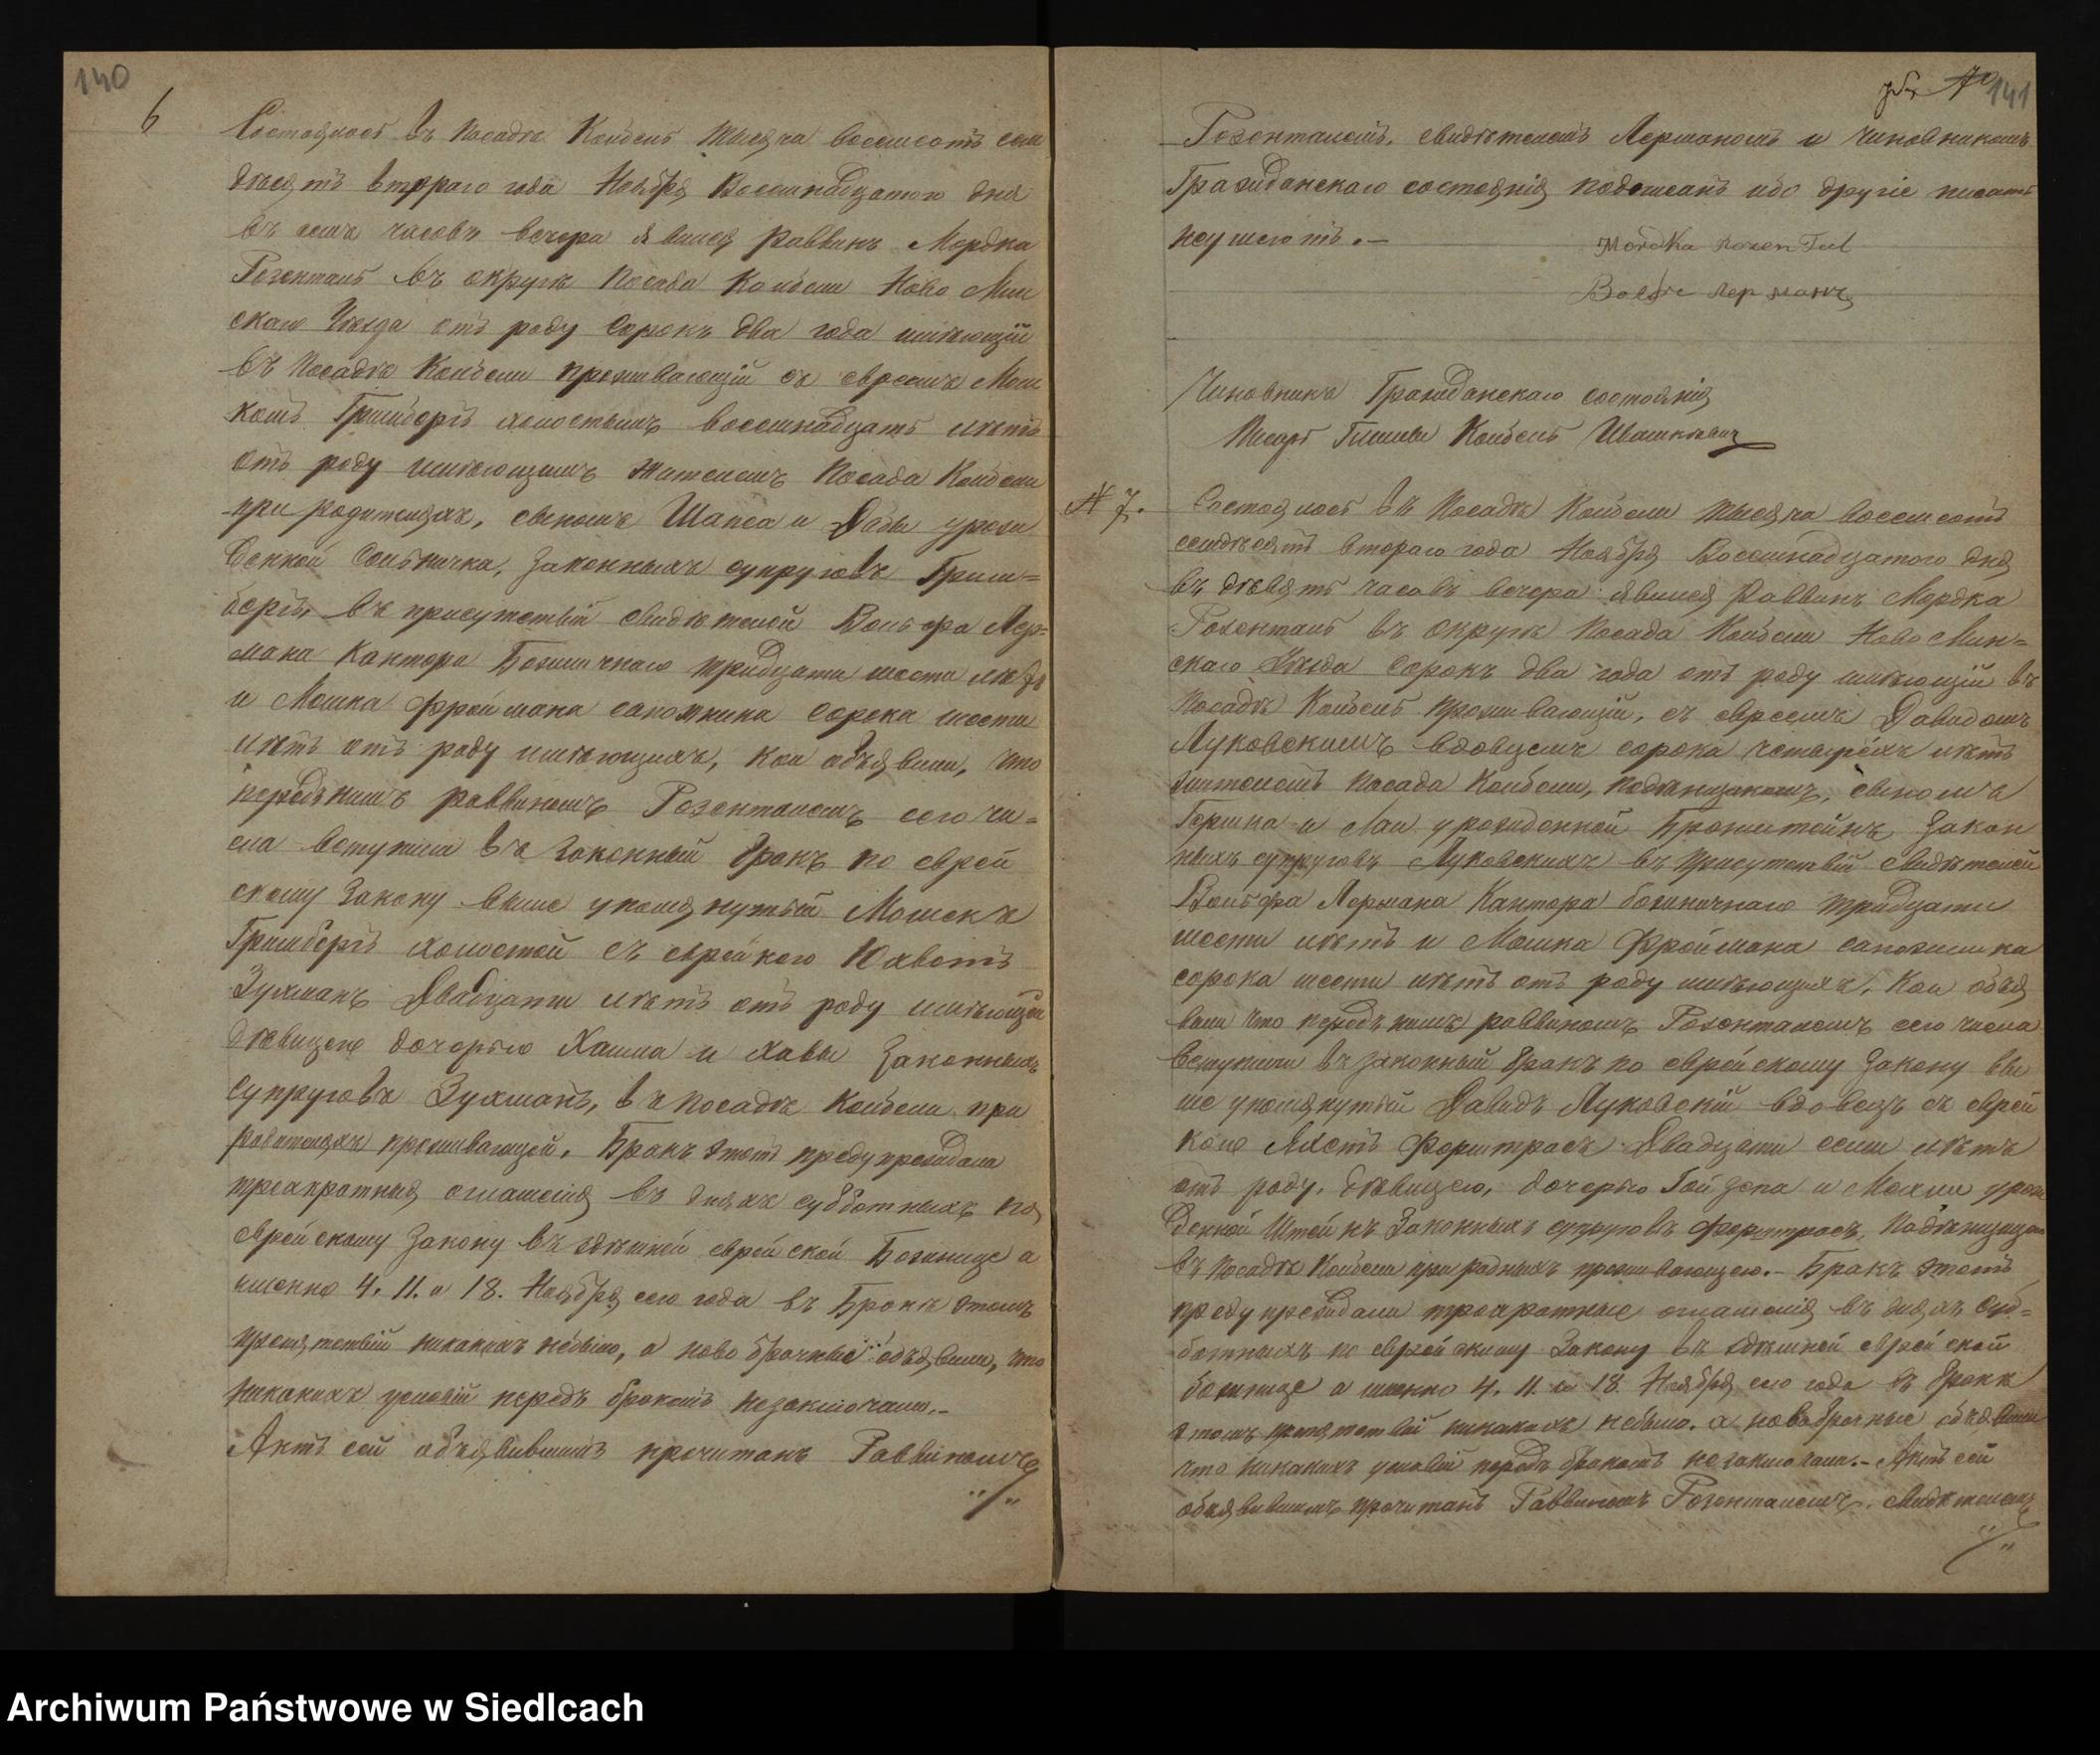 140
6
Состоялось въ Посадѣ Колбель тысяча восемсотъ семь
десятъ втораго года Ноября Восемнадцатого дня
въ семь часовъ вечера явился Раввинъ Мордка
Розенталь въ округѣ Посада Колбели Ново Мин
скаго Уѣзда отъ роду сорокъ два года имѣющій
въ Посадѣ Колбели проживающій съ евреемъ Мош
комъ Гринбергъ холостымъ восемнадцать лѣтъ
отъ роду имѣющимъ жителемъ Посада Колбели
при родителяхъ, сыномъ Шапса и урож
денной законныхъ супруговъ Грин=
бергъ, въ присутствіи свидѣтелей Вольфа Лер=
мана Кантора Божничнаго тридцати шести лѣтъ
и Мошка Фроймана сапожника сорока шести
лѣтъ отъ роду имѣющихъ, кои объявили, что
передъ нимъ раввиномъ Розенталемъ сего чи=
сла вступили въ законный бракъ по еврей
скому закону выше упомянутый Мошекъ
Гринбергъ холостой съ еврейкою Юхветъ
Зухманъ Двадцати лѣтъ отъ роду имѣющей
дѣвицею дочерью Хаима и Хавы законныхъ
супруговъ Зухманъ, въ посадѣ Колбели при
родителяхъ проживающей. Бракъ этотъ предупреждали
троекратныя оглашенія въ дняхъ субботныхъ по
еврейскому закону въ здѣшней еврейской Божнице а
именно 4. 11. и 18. Ноября сего года въ Бракѣ этомъ
препятствій никакихъ небыло, а ново брачные объявили, что
никакихъ условій передъ бракомъ незаключали.-
Актъ сей объявившимъ прочитанъ Раввиномъ
141
Розенталемъ, свидѣтелемъ Лерманомъ и чиновникомъ
Гражданскаго состоянія подписанъ ибо другіе писать
неумеютъ.-
Mordka Rosental
Вольфъ Лерманъ
Чиновникъ Гражданскаго состоянія
Писарь Гмины Колбель
№ 7.
Состоялось въ Посадѣ Колбели тысяча восемсотъ
семдесятъ втораго года Ноября Восемнадцатого дня
въ девять часовъ вечера явился Раввинъ Мордка
Розенталь въ Округѣ Посада Колбели Ново Мин=
скаго Уѣзда сорокъ два года отъ роду имѣющій въ
Посадѣ Колбель проживающій, съ евреемъ Давидомъ
Луковскимъ вдовцемъ сорока четырехъ лѣтъ
жителемъ Посада Колбели, сыномъ
Гершка и Лаи урожденной Бронштейнъ закон
ныхъ супруговъ Луковскихъ въ присутствіи свидѣтелей
Вольфа Лермана Кантора божничнаго тридцати
шести лѣтъ и Мошка Фроймана сапожника
сорока шести лѣтъ отъ роду имѣющихъ, кои объя
вили что передъ нимъ раввиномъ Розенталемъ сего числа
вступили въ законный бракъ по еврейскому закону вы
ше упомянутый Давидъ Луковскій вдовецъ съ еврей
кою Двадцати семи лѣтъ
отъ роду, дѣвицею, дочерью и урож
денной Штейнъ законныхъ супруговъ
въ Посадѣ Колбели при родныхъ проживающею.- Бракъ этотъ
предупреждали троекратные оглашенія въ дняхъ суб=
ботныхъ по еврейскому закону въ здѣшней еврейской
божнице а именно 4. 11. и 18. Ноября сего года въ бракѣ
этомъ препятствій никакихъ небыло. а новобрачные объявили
что никакихъ условій передъ бракомъ незаключали.- Актъ сей
объявившимъ прочитанъ Раввиномъ Розенталемъ, свидѣтелемъ
Archiwum Państwowe w Siedlcach